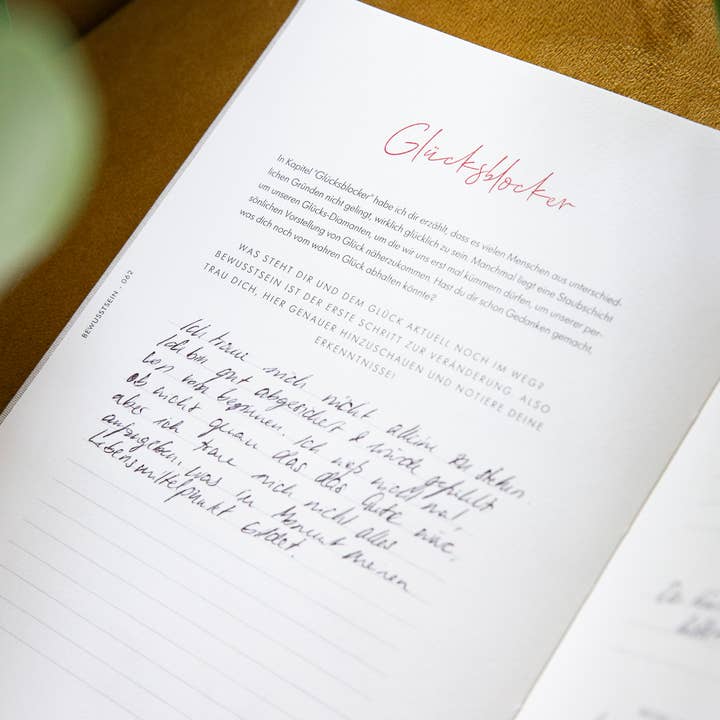 Glücksblocker
In Kapitel "Glücksblocker" habe ich dir erzählt, dass es vielen Menschen aus unterschied-
lichen Gründen nicht gelingt, wirklich glücklich zu sein. Manchmal liegt eine Staubschicht
um unseren Glücks-Diamanten, um die wir uns erst mal kümmern dürfen, um unserer per-
sönlichen Vorstellung von Glück näherzukommen. Hast du dir schon Gedanken gemacht,
was dich noch vom wahren Glück abhalten könnte?
WAS STEHT DIR UND DEM GLÜCK AKTUELL NOCH IM WEG?
BEWUSSTSEIN IST DER ERSTE SCHRITT ZUR VERÄNDERUNG. ALSO
TRAU DICH, HIER GENAUER HINZUSCHAUEN UND NOTIERE DEINE
ERKENNTNISSE!
BEWUSSTSEIN · 062
Ich traue mich nicht allein zu stehen.
Ich bin gut abgesichert & würde gefühlt
von vorn beginnen. Ich weiß nicht mal,
ob nicht genau das das Gute wäre,
aber ich traue mich nicht alles
aufzugeben, was im Moment meinen
Lebensmittelpunkt bildet.